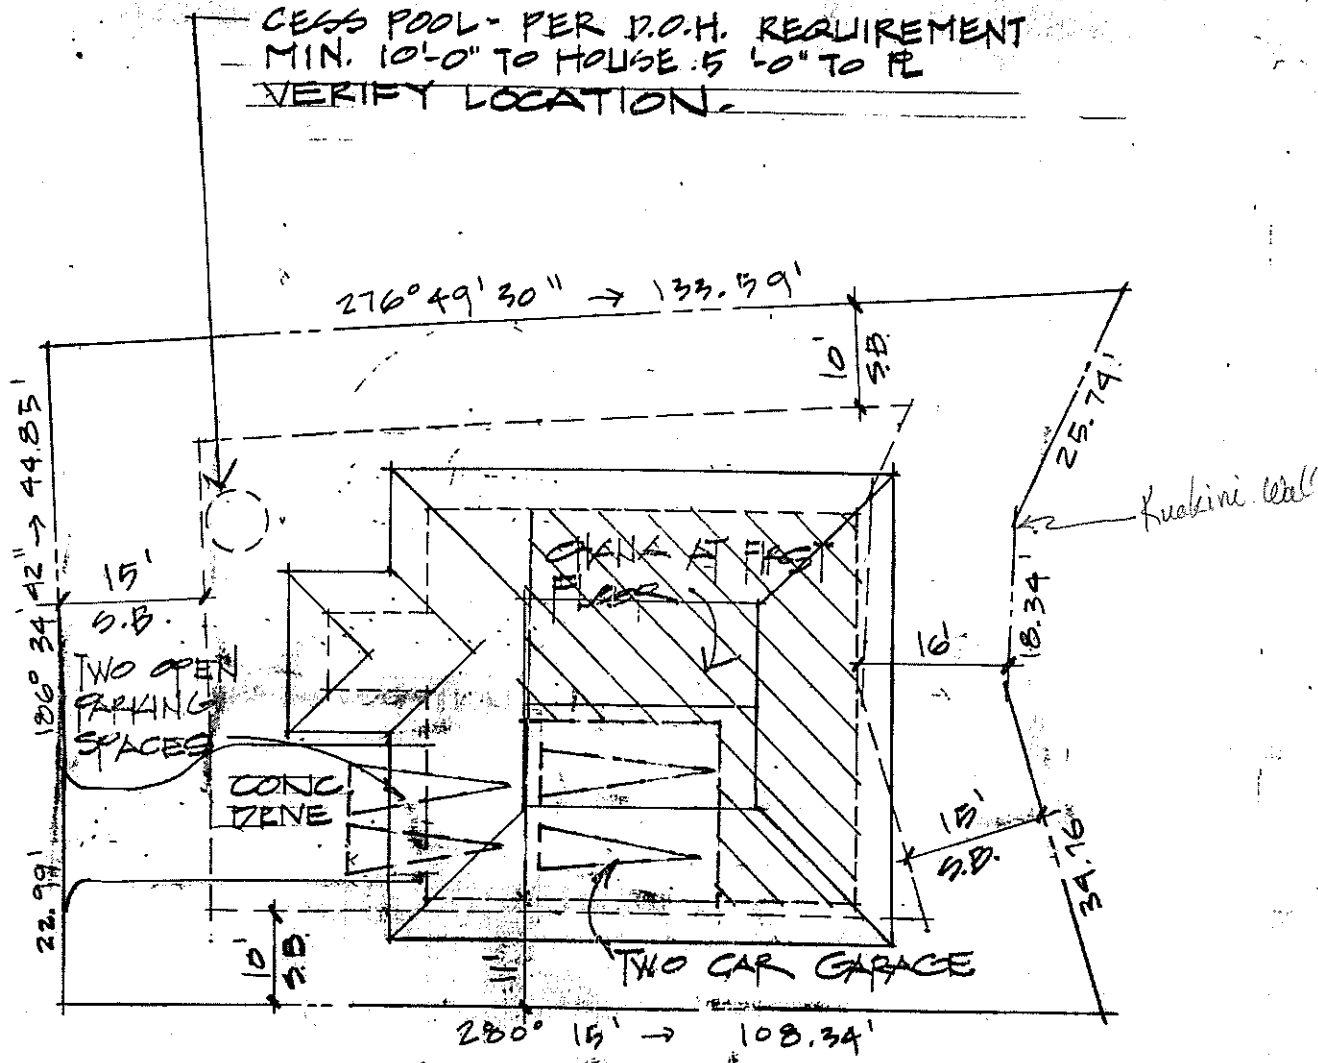 CESS POOL - PER D.O.H. REQUIREMENT
MIN. 10'-0" TO HOUSE. 5'-0" TO PL
VERIFY LOCATION.
276° 49' 30" → 133.59'
10'
S.B.
186° 34' 42" → 44.85'
25.74'
Kuakini Wall
15'
S.B.
OHANA AT FIRST
FLOOR
18.34'
16'
TWO OPEN
PARKING
SPACES
CONC
DRNE
15'
S.B.
39.76
22.99'
10'
S.B.
11'
TWO CAR GARAGE
280° 15' → 108.34'